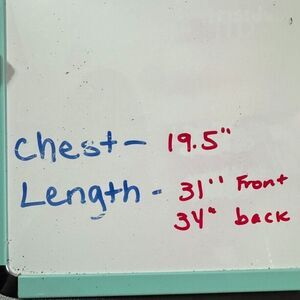 Chest - 19.5"
Length - 31" Front
34" back